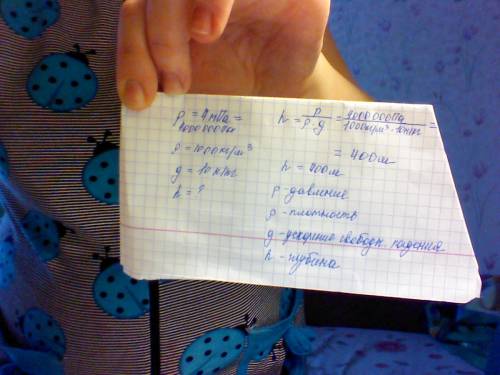 p = 4 мПа =
4000000 Па
ρ = 1000 кг/м³
g = 10 н/кг
h = ?
h = p / ρ · g = 4000000 Па / 1000 кг/м³ · 10 н/кг =
= 400 м
h = 400 м
p - давление
ρ - плотность
g - ускорение свободн. падения
h - глубина